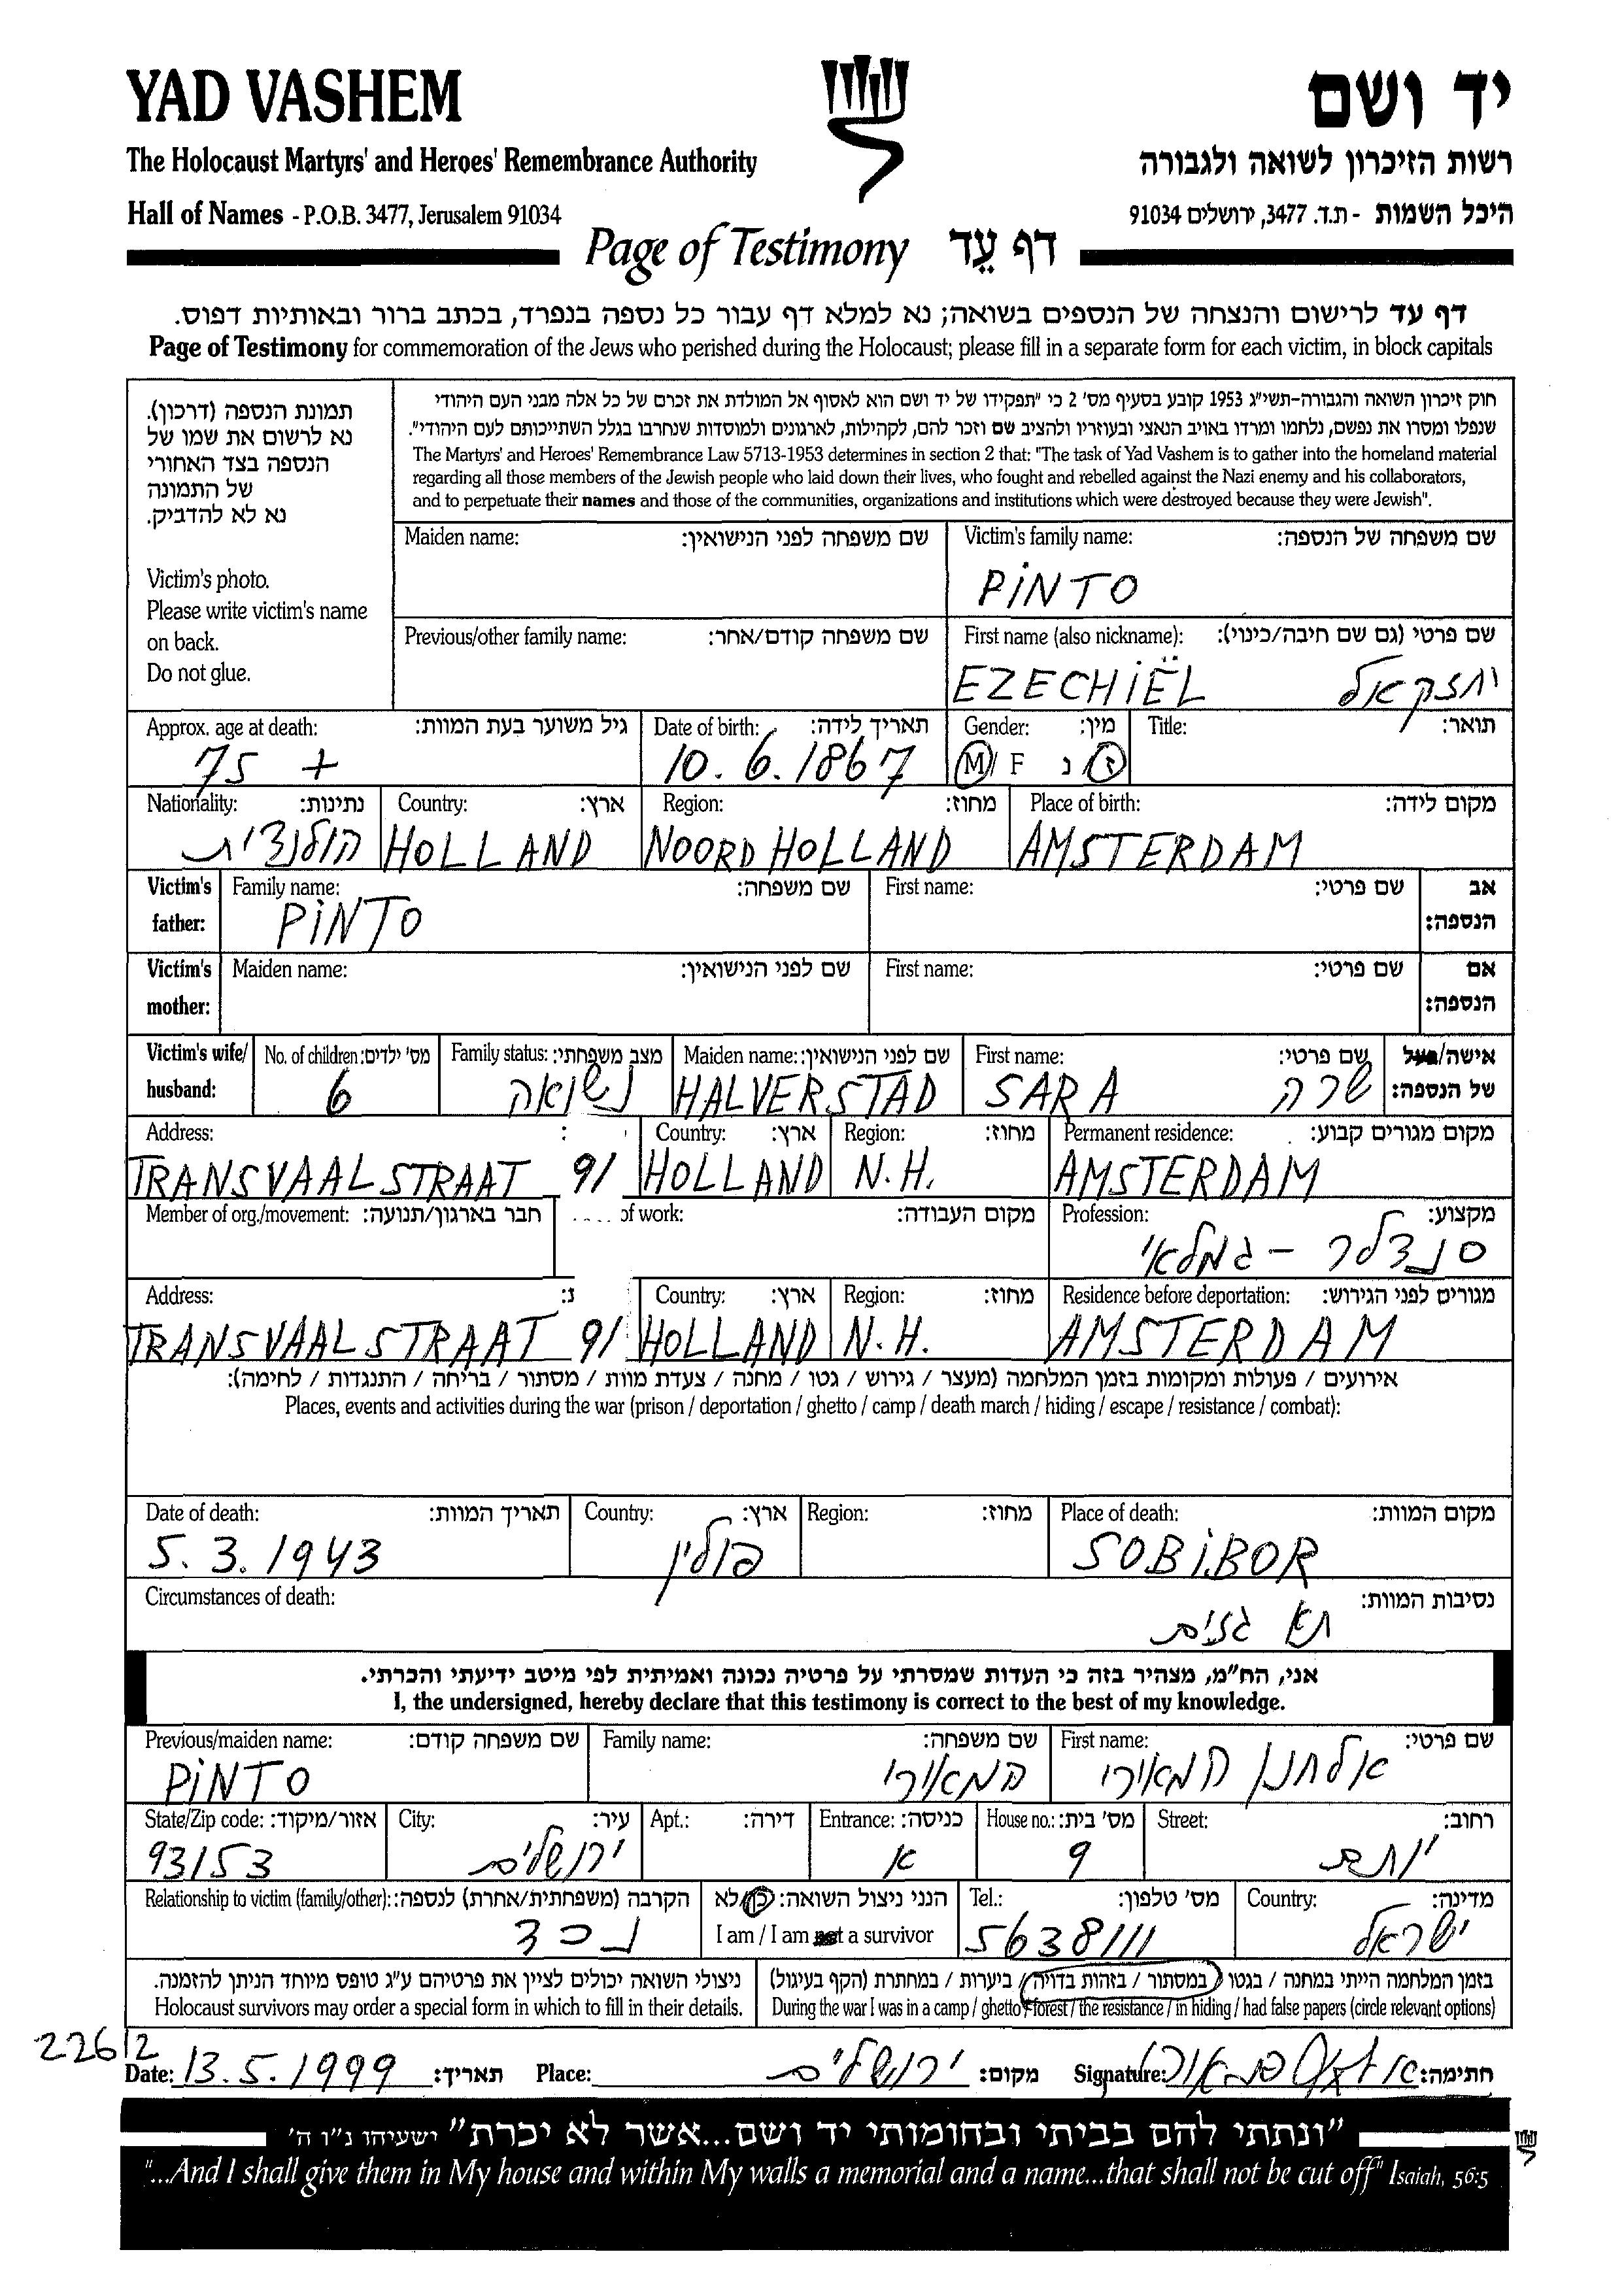 YAD VASHEM
יד ושם
The Holocaust Martyrs' and Heroes' Remembrance Authority
רשות הזיכרון לשואה ולגבורה
Hall of Names - P.O.B. 3477, Jerusalem 91034
היכל השמות - ת.ד. 3477, ירושלים 91034
Page of Testimony דף עֵד
דף עד לרישום והנצחה של הנספים בשואה; נא למלא דף עבור כל נספה בנפרד, בכתב ברור ובאותיות דפוס.
Page of Testimony for commemoration of the Jews who perished during the Holocaust; please fill in a separate form for each victim, in block capitals
תמונת הנספה (דרכון).
נא לרשום את שמו של
הנספה בצד האחורי
של התמונה
נא לא להדביק.
Victim's photo.
Please write victim's name
on back.
Do not glue.
חוק זיכרון השואה והגבורה-תשי"ג 1953 קובע בסעיף מס' 2 כי "תפקידו של יד ושם הוא לאסוף אל המולדת את זכרם של כל אלה מבני העם היהודי
שנפלו ומסרו את נפשם, נלחמו ומרדו באויב הנאצי ובעוזריו ולהציב שם וזכר להם, לקהילות, לארגונים ולמוסדות שנחרבו בגלל השתייכותם לעם היהודי".
The Martyrs' and Heroes' Remembrance Law 5713-1953 determines in section 2 that: "The task of Yad Vashem is to gather into the homeland material
regarding all those members of the Jewish people who laid down their lives, who fought and rebelled against the Nazi enemy and his collaborators,
and to perpetuate their names and those of the communities, organizations and institutions which were destroyed because they were Jewish".
Maiden name: שם משפחה לפני הנישואין:
Victim's family name: שם משפחה של הנספה:
PINTO
Previous/other family name: שם משפחה קודם/אחר:
First name (also nickname): שם פרטי (גם שם חיבה/כינוי):
EZECHIËL יחזקאל
Approx. age at death: גיל משוער בעת המוות:
75 +
Date of birth: תאריך לידה:
10.6.1867
Gender: מין:
M/ F ז נ
Title: תואר:
Nationality: נתינות:
הולנדית
Country: ארץ:
HOLLAND
Region: מחוז:
NOORD HOLLAND
Place of birth: מקום לידה:
AMSTERDAM
Victim's father:
Family name: שם משפחה:
PINTO
First name: שם פרטי:
אב הנספה:
Victim's mother:
Maiden name: שם לפני הנישואין:
First name: שם פרטי:
אם הנספה:
Victim's wife/ husband:
No. of children: מס' ילדים:
6
Family status: מצב משפחתי:
נשואה
Maiden name: שם לפני הנישואין:
HALVERSTAD
First name: שם פרטי:
SARA שרה
אישה/בעל של הנספה:
Address:
TRANSVAALSTRAAT 91
Country: ארץ:
HOLLAND
Region: מחוז:
N.H.
Permanent residence: מקום מגורים קבוע:
AMSTERDAM
Member of org./movement: חבר בארגון/תנועה:
of work: מקום העבודה:
Profession: מקצוע:
סנדלר - גמלאי
Address:
TRANSVAALSTRAAT 91
Country: ארץ:
HOLLAND
Region: מחוז:
N.H.
Residence before deportation: מגורים לפני הגירוש:
AMSTERDAM
אירועים / פעולות ומקומות בזמן המלחמה (מעצר / גירוש / גטו / מחנה / צעדת מוות / מסתור / בריחה / התנגדות / לחימה):
Places, events and activities during the war (prison / deportation / ghetto / camp / death march / hiding / escape / resistance / combat):
Date of death: תאריך המוות:
5.3.1943
Country: ארץ:
פולין
Region: מחוז:
Place of death: מקום המוות:
SOBIBOR
Circumstances of death: נסיבות המוות:
תא גזים
אני, הח"מ, מצהיר בזה כי העדות שמסרתי על פרטיה נכונה ואמיתית לפי מיטב ידיעתי והכרתי.
I, the undersigned, hereby declare that this testimony is correct to the best of my knowledge.
Previous/maiden name: שם משפחה קודם:
PINTO
Family name: שם משפחה:
המאירי
First name: שם פרטי:
אלחנן המאירי
State/Zip code: אזור/מיקוד:
93153
City: עיר:
ירושלים
Apt.: דירה:
Entrance: כניסה:
א
House no.: מס' בית:
9
Street: רחוב:
יותם
Relationship to victim (family/other): הקרבה (משפחתית/אחרת) לנספה:
נכד
הנני ניצול השואה: כן/לא
I am / I am not a survivor
Tel.: מס' טלפון:
5638111
Country: מדינה:
ישראל
ניצולי השואה יכולים לציין את פרטיהם ע"ג טופס מיוחד הניתן להזמנה.
Holocaust survivors may order a special form in which to fill in their details.
בזמן המלחמה הייתי במחנה / בגטו / במסתור / בזהות בדויה / ביערות / במחתרת (הקף בעיגול)
During the war I was in a camp / ghetto / forest / the resistance / in hiding / had false papers (circle relevant options)
226/2
Date: 13.5.1999 תאריך: Place: ירושלים מקום: Signature: חתימה:
"ונתתי להם בביתי ובחומותי יד ושם...אשר לא יכרת" ישעיהו נ"ו ה'
"...And I shall give them in My house and within My walls a memorial and a name...that shall not be cut off" Isaiah, 56:5